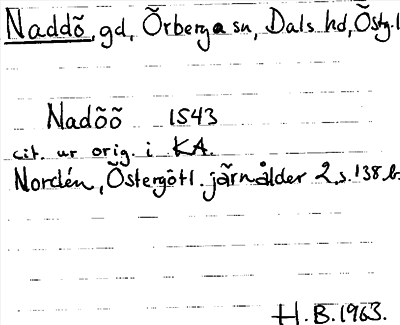 Naddõ, gd, Õrberga sn, Dals hd, Õstg.l
Nadõõ 1543
cit. ur orig. i KA.
Nordén, Õstergõtl. järnålder 2, s. 138 b.
H.B. 1963.